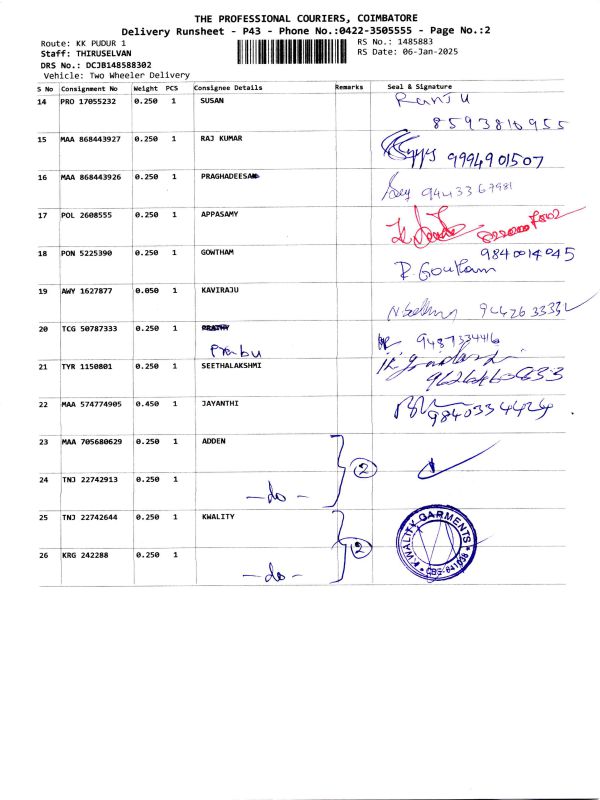 THE PROFESSIONAL COURIERS, COIMBATORE
Delivery Runsheet - P43 - Phone No.:0422-3505555 - Page No.:2
Route: KK PUDUR 1
RS No.: 1485883
Staff: THIRUSELVAN
RS Date: 06-Jan-2025
DRS No.: DCJB148588302
Vehicle: Two Wheeler Delivery
S No Consignment No Weight PCS Consignee Details Remarks Seal & Signature
14 PRO 17055232 0.250 1 SUSAN Ranju
8593810955
15 MAA 868443927 0.250 1 RAJ KUMAR 9994901507
16 MAA 868443926 0.250 1 PRAGHADEESAN
17 POL 2608555 0.250 1 APPASAMY
18 PON 5225390 0.250 1 GOWTHAM 9840014045
R. Goutham
19 AWY 1627877 0.050 1 KAVIRAJU
20 TCG 50787333 0.250 1 9487334416
Prabu
21 TYR 1150801 0.250 1 SEETHALAKSHMI
22 MAA 574774905 0.450 1 JAYANTHI 9840334424
23 MAA 705680629 0.250 1 ADDEN 2
24 TNJ 22742913 0.250 1 -do-
25 TNJ 22742644 0.250 1 KWALITY 2
KWALITY GARMENTS * CBE-641038 *
26 KRG 242288 0.250 1 -do-